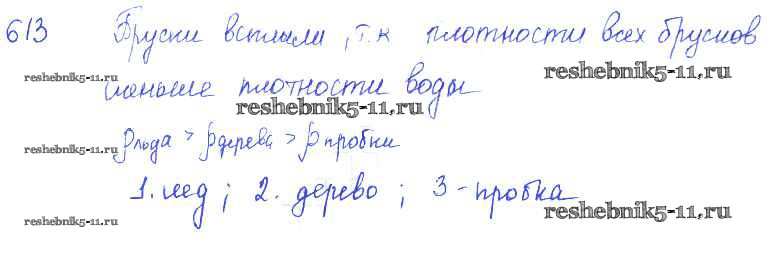 613 Бруски всплыли, т.к плотности всех брусков
reshebnik5-11.ru reshebnik5-11.ru
меньше плотности воды
reshebnik5-11.ru
ρльда > ρдерева > ρпробки
reshebnik5-11.ru
1. лед; 2. дерево; 3 - пробка
reshebnik5-11.ru reshebnik5-11.ru